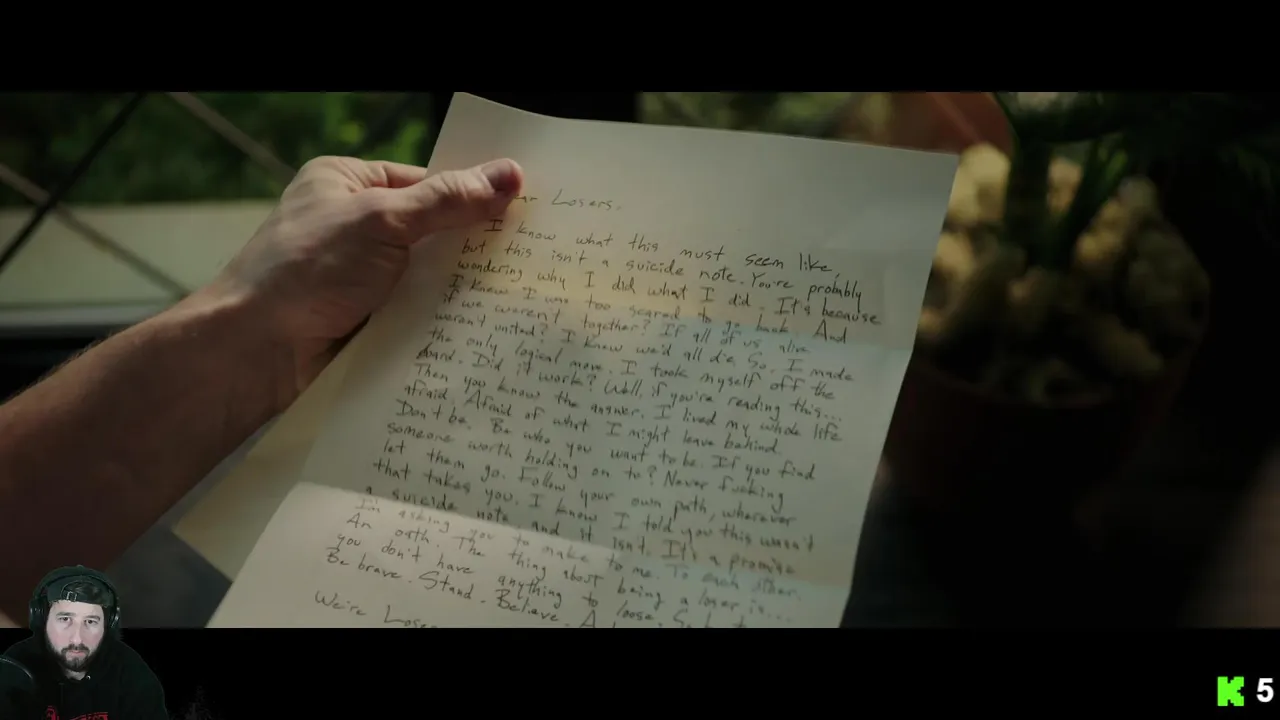 ar Losers.
I know what this must seem like,
but this isn't a suicide note. You're probably
wondering why I did what I did. It's because
I knew I was too scared to go back. And
if we weren't together? If all of us alive
weren't united? I knew we'd all die. So, I made
the only logical move. I took myself off the
board. Did it work? Well, if you're reading this...
Then you know the answer. I lived my whole life
afraid. Afraid of what I might leave behind.
Don't be. Be who you want to be. If you find
someone worth holding on to? Never fucking
let them go. Follow your own path, wherever
that takes you. I know I told you this wasn't
a suicide note, and it isn't. It's a promise
I'm asking you to make to me. To each other.
An oath. The thing about being a loser is...
you don't have anything to loose. So, be
Be brave. Stand. Believe. A
We're Loser
K 5